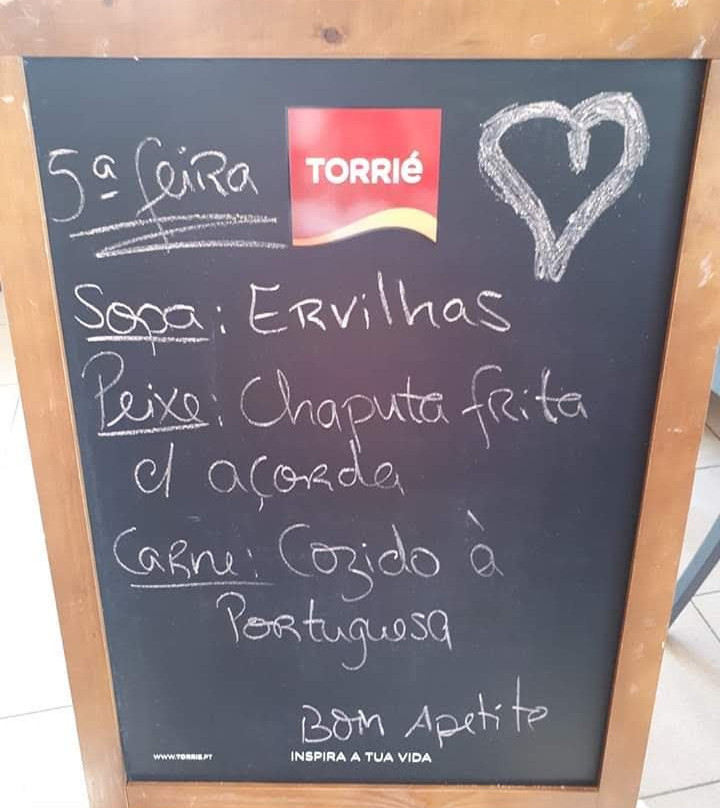 5ª feira
TORRIÉ
Sopa: Ervilhas
Peixe: Chaputa frita
c/ açorda
Carne: Cozido à
Portuguesa
Bom Apetite
WWW.TORRIE.PT
INSPIRA A TUA VIDA